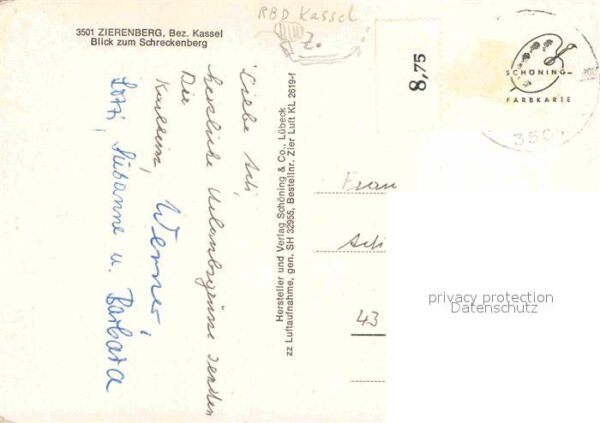 3501 ZIERENBERG, Bez. Kassel
Blick zum Schreckenberg
RBD Kassel
Z.
8,75
SCHÖNING-
FARBKARTE
350
Liebe
herzliche Urlaubsgrüsse senden
Dir
Karlheinz, Werner,
Lotti, Susanne u. Barbara
Hersteller und Verlag Schöning & Co., Lübeck
zz Luftaufnahme, gen. SH 32955, Bestellnr. Zier Luft KL 2619-f
Frau
43
privacy protection
Datenschutz